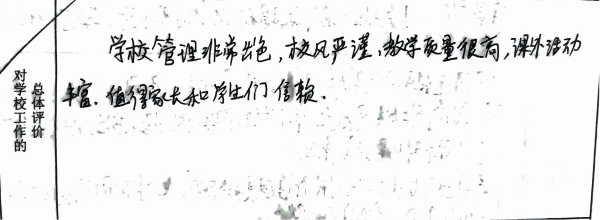 对学校工作的
总体评价
学校管理非常出色,校风严谨,教学质量很高,课外活动
丰富.值得家长和学生们信赖.